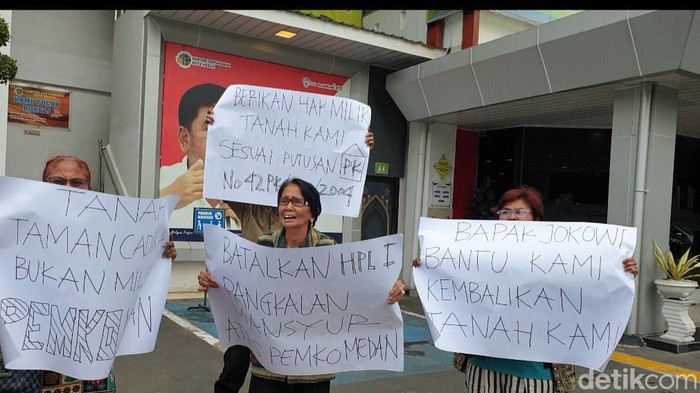 KAMI TOLAK
PUNGLI
BERIKAN HAK MILIK
TANAH KAMI
SESUAI PUTUSAN PK
No 42 PK 2004
TANAH
TAMAN CAD
BUKAN MIL
PEMKO AN
BATALKAN HPL I
PANGKALAN
MANSYUR
PEMKO MEDAN
BAPAK JOKOWI
BANTU KAMI
KEMBALIKAN
TANAH KAMI
detikcom